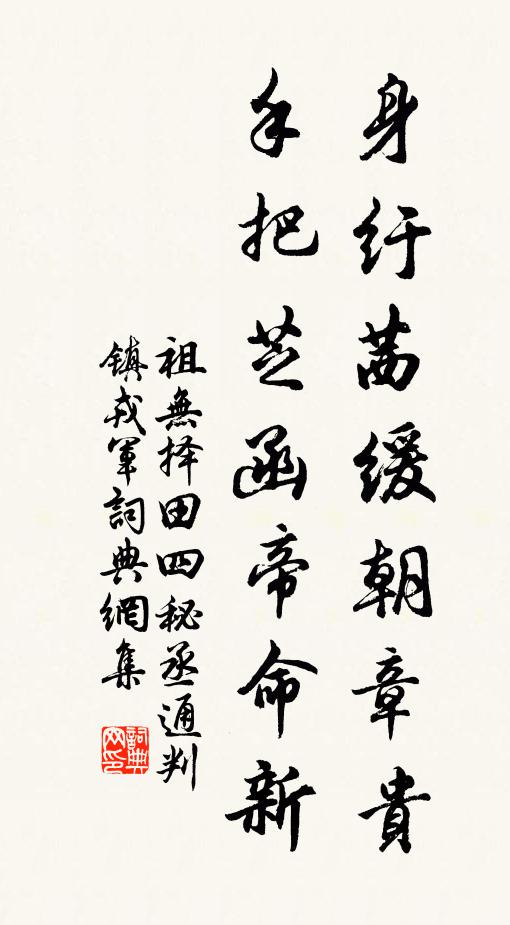 身纡茜缓朝章貴
手把芝函帝命新
祖無择田四秘丞通判
镇戎軍詞典網集
詞典网印